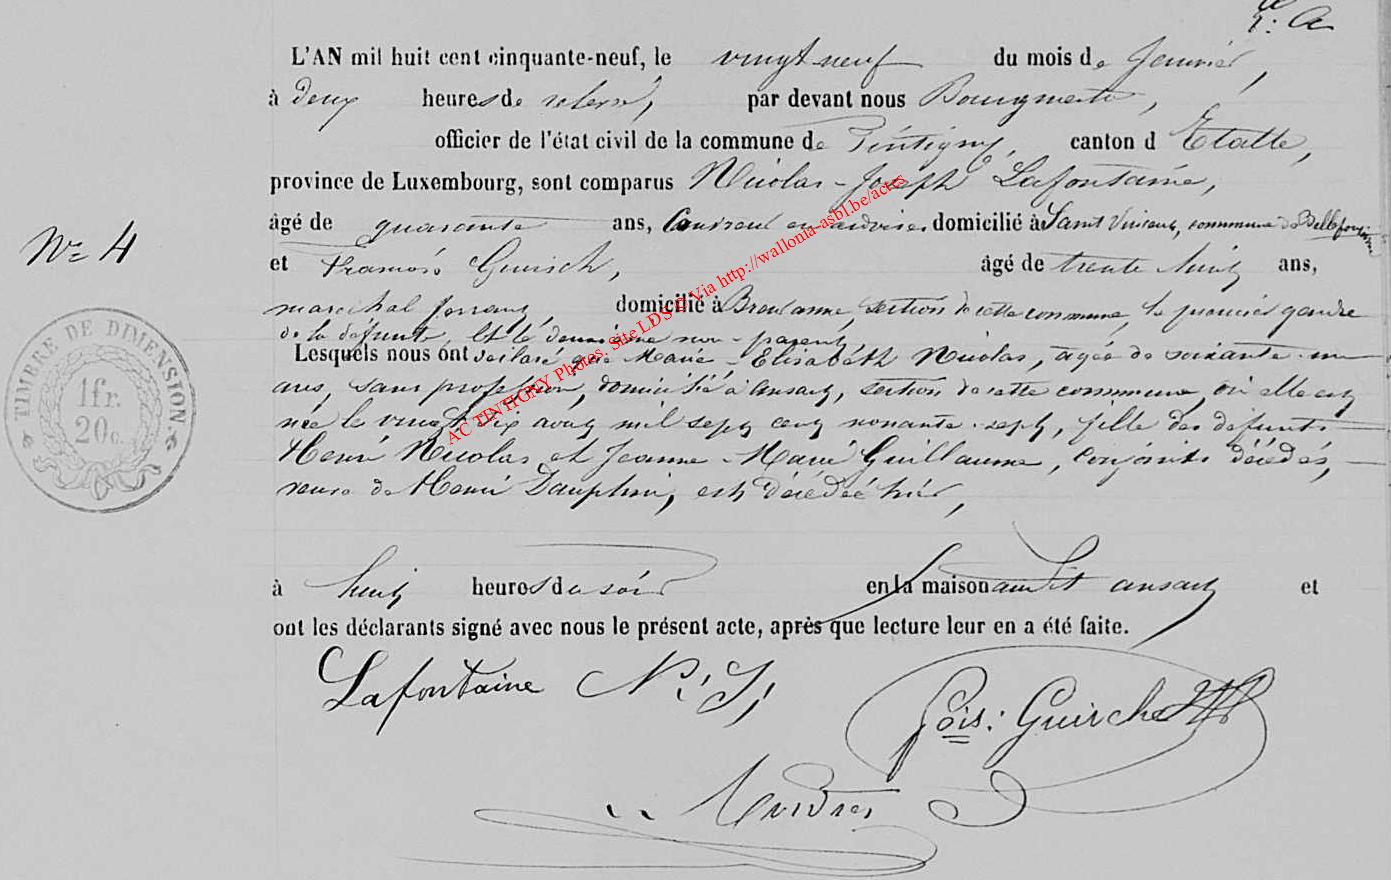 L'AN mil huit cent cinquante-neuf, le vingt neuf du mois de Janvier,
à deux heures de relevé, par devant nous Bourgmestre,
officier de l'état civil de la commune de Tintigny, canton d Etalle,
province de Luxembourg, sont comparus Nicolas-Joseph Lafontaine,
âgé de quarante ans, Couvreur en ardoises domicilié à Saint Vincent, commune de Bellefontaine
N° 4
et François Guirsch, âgé de trente huit ans,
maréchal ferrant, domicilié à Breuvanne, section de cette commune, le premier gendre
de la défunte, et le deuxième non-parent,
Lesquels nous ont déclaré que Marie-Elisabeth Nicolas, âgée de soixante-un
ans, sans profession, domiciliée à ansart, section de cette commune, où elle est
née le vingt dix août mil sept cent nonante-sept, fille des défunts
Henri Nicolas et Jeanne-Marie Guillaume, conjoints décédés,
veuve de Henri Dauphin, est décédée hier,
à huit heures du soir en la maison audit ansart et
ont les déclarants signé avec nous le présent acte, après que lecture leur en a été faite.
Lafontaine N. J.
fois: Guirche
TIMBRE DE DIMENSION
1fr.
20c.
AC TINTIGNY Photos: Site LDS © Via http://wallonia-asbl.be/actes